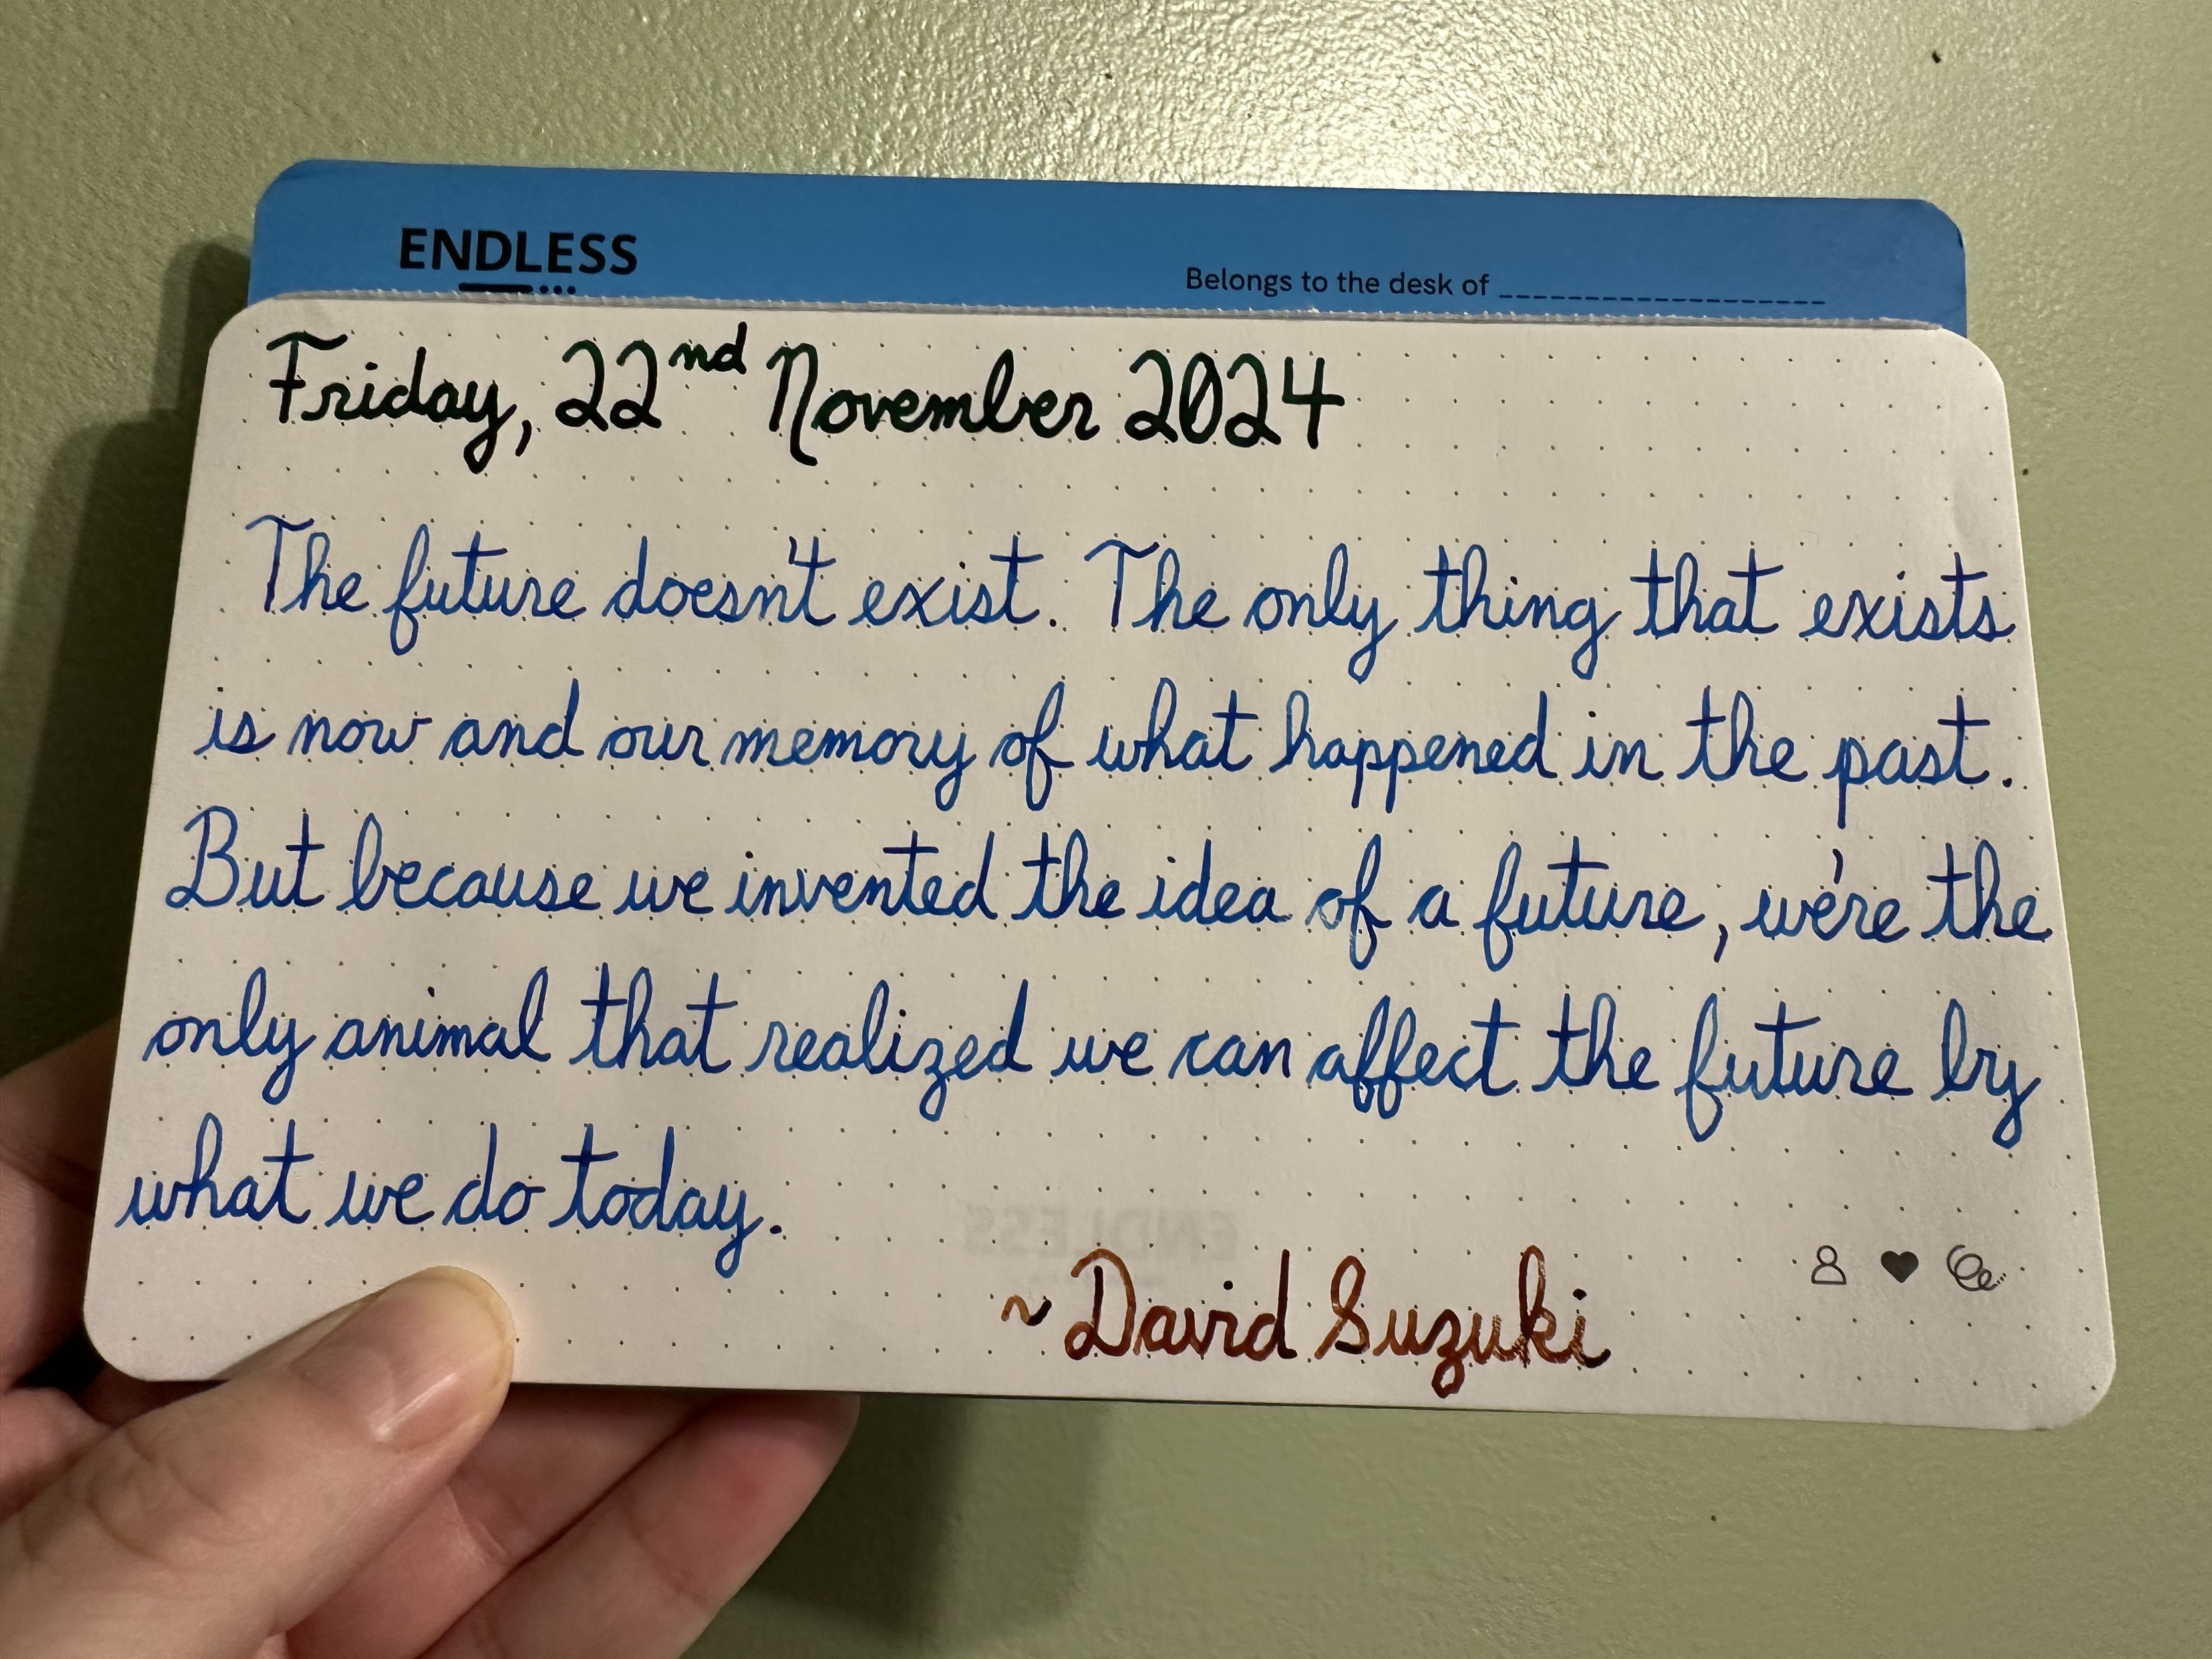 ENDLESS
Belongs to the desk of ___________________
Friday, 22nd November 2024
The future doesn't exist. The only thing that exists
is now and our memory of what happened in the past.
But because we invented the idea of a future, we're the
only animal that realized we can affect the future by
what we do today.
ENDLESS
~ David Suzuki